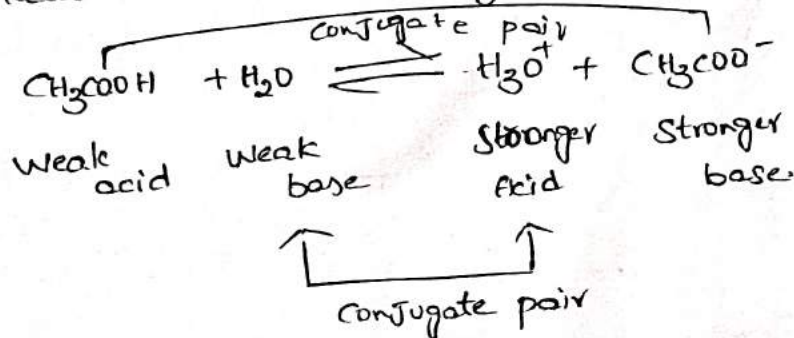 conjugate pair
CH3COOH + H2O ⇌ H3O+ + CH3COO-
Weak acid Weak base Stronger Acid Stronger base.
Conjugate pair